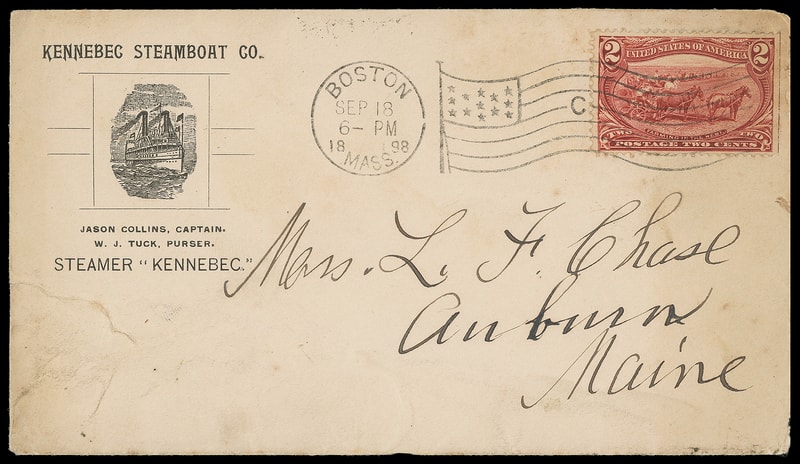 KENNEBEC STEAMBOAT CO.
JASON COLLINS, CAPTAIN.
W. J. TUCK, PURSER.
STEAMER "KENNEBEC."
BOSTON
SEP 18
6- PM
18 98
MASS.
C
2 UNITED STATES OF AMERICA 2
TWO FARMING IN THE WEST. TWO
POSTAGE TWO CENTS
Mrs. L. F. Chase
Auburn
Maine